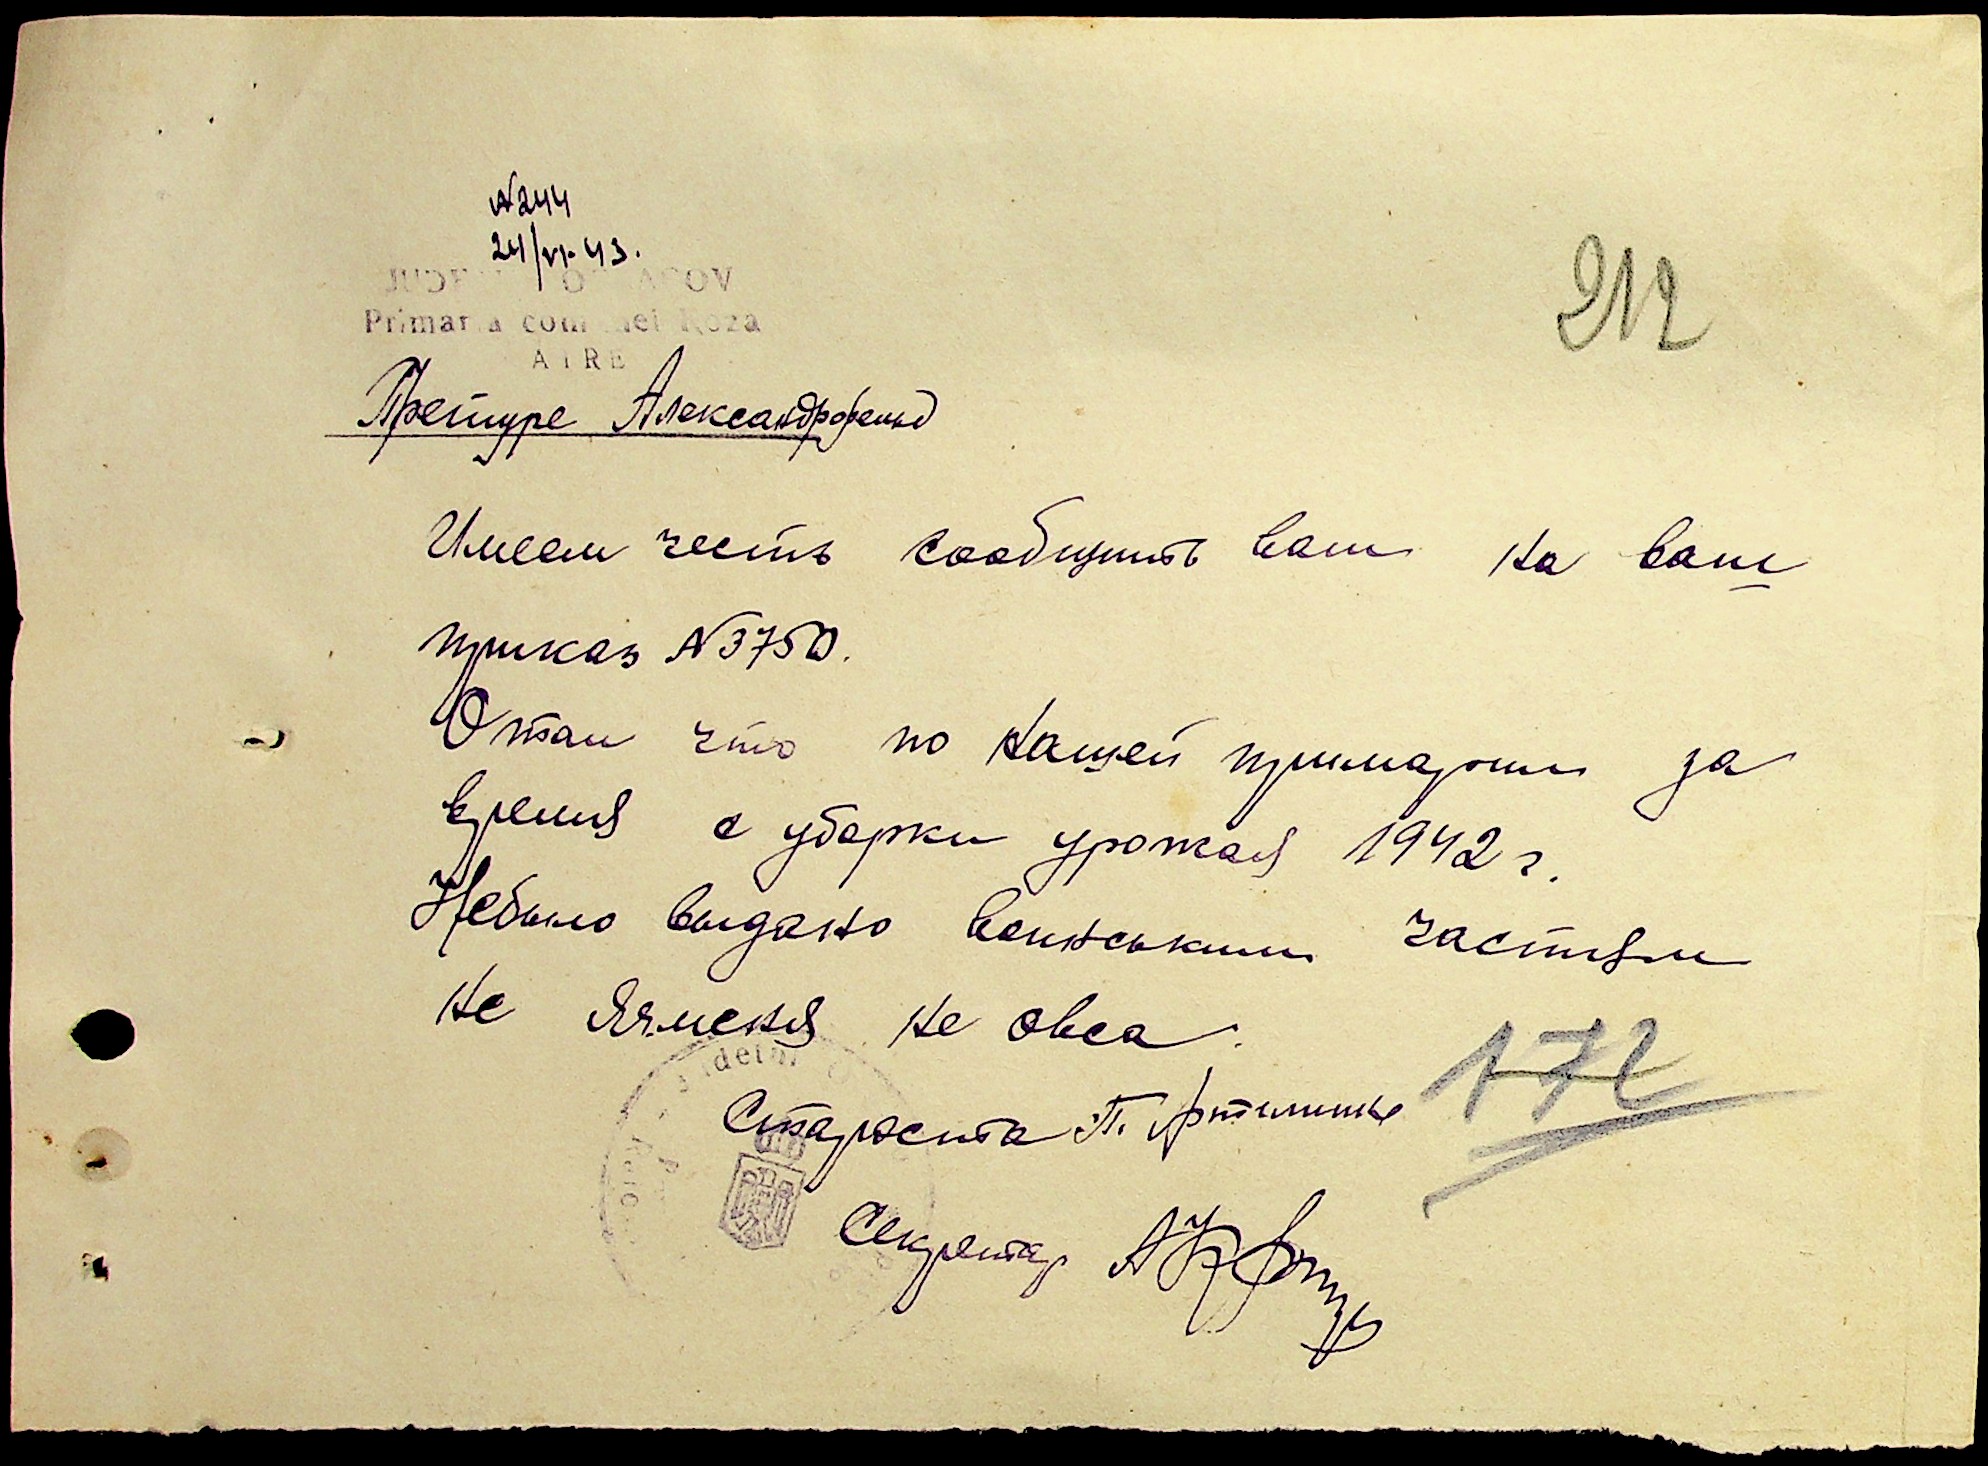 N244
24/VI-43.
Primaria comunei Roza
212
Претуре Александрфельд
Имеем честь сообщить вам на ваш
приказ N3750.
Отом что по нашей примарии за
время с уборки урожая 1942 г.
Небыло выдано воинськими частями
не ячменя не овса.
172
Староста П.
Секретар